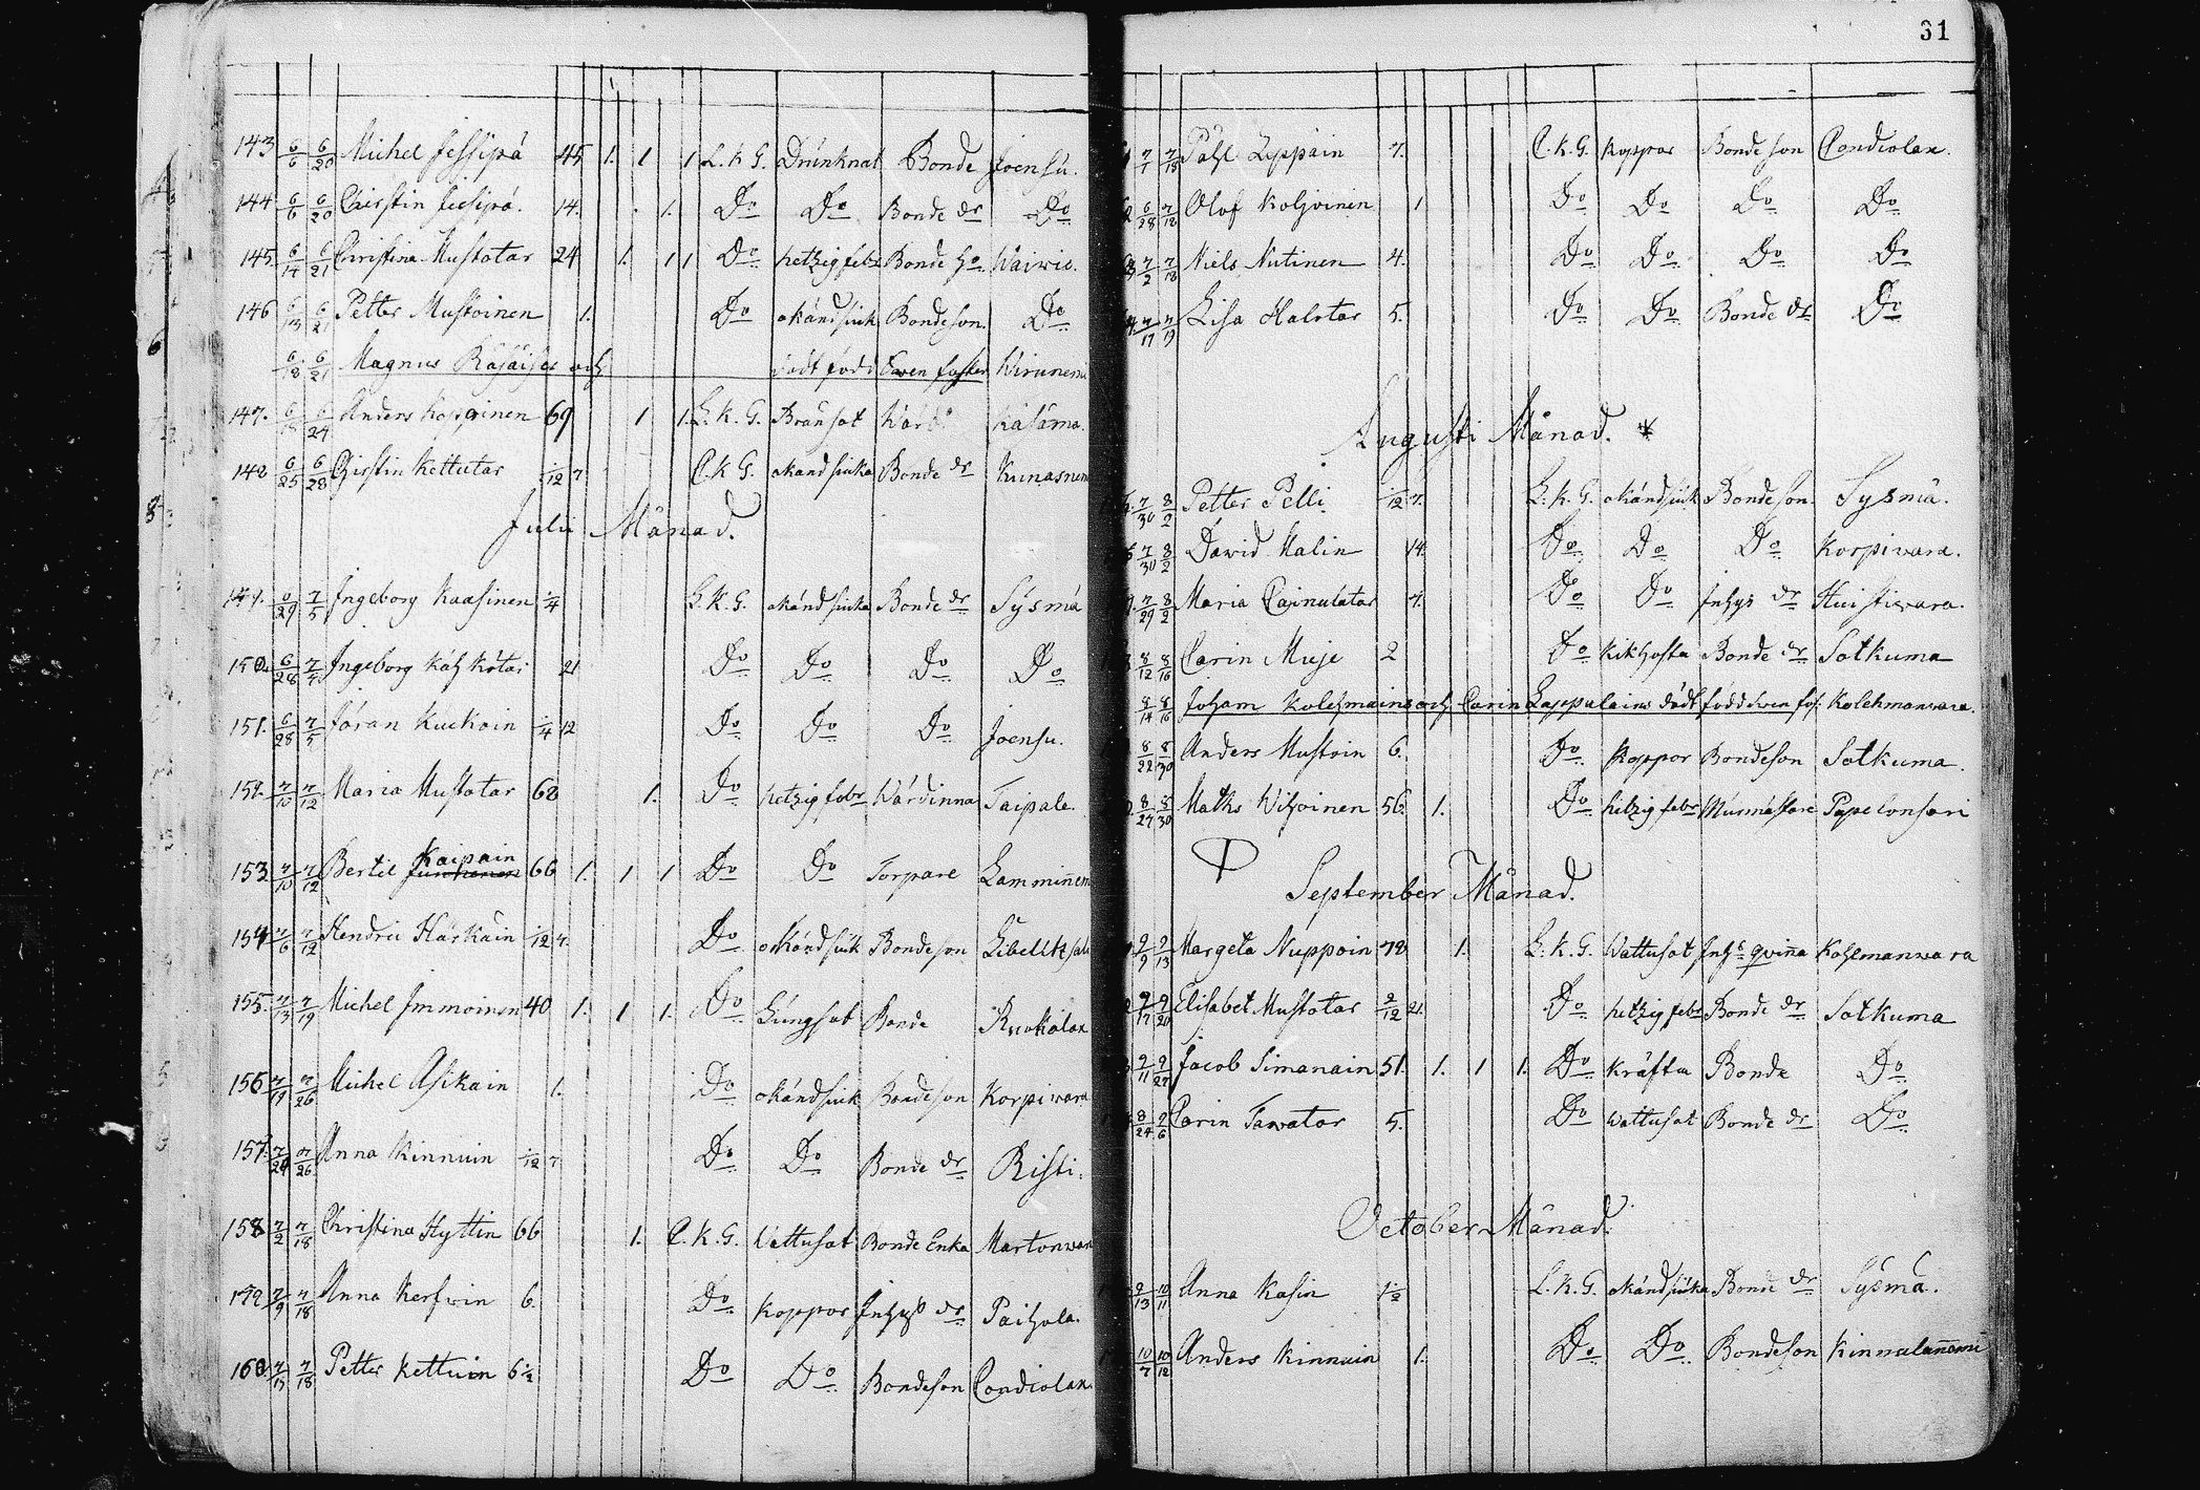 31
143 6/6 6/20 Michel Jessipä 45 1. 1 1 L. K. G. Drunknat Bonde Joensu.
144 6/6 6/20 Christin 14. 1. Do Do Bonde dr Do
145. 6/14 6/21 Christina Mustotar 24 1. 1 1 Do hetzig febr Bonde Wäiwie.
146 6/13 6/21 Petter Mustoinen 1. Do okändsiuk Bondeson. Do
6/18 6/21 Magnus och dödt född Swen foster
147. 6/24 Anders Koppinen 69 1 1. L. K. G. Bränsot Käsämä.
148 6/25 6/28 Kettutar 1/12 7 C. K. G. okändsiuka Bonde dr
Julii Månad.
6/29 7/5 Ingeborg Kaasinen 1/4 L. K. G. okändsiuka Bonde dr Sysmä
150. 6/28 7/5 Ingeborg 21 Do Do Do Do
151. 6/28 7/5 Jöran Kuckoin 1/4 12 Do Do Do Joensu.
7/10 7/12 Maria Mustotar 68 1. Do hetzig febr Wärdinna Taipale.
Kaipain
153 7/10 7/12 Bertil 66 1. 1 1 Do Do Torpare
154 7/6 7/12 Hendric Härkäin 1/12 7. Do okändsiuk Bondeson
155. 7/13 7/19 Michel Immoinen 40 1. 1 1. Do Lungsot Bonde Ruokolax
156 7/19 7/26 Michel Asikain 1. Do okändsiuk Bondeson Korpiwara
157. 7/26 Anna Kinnuin 1/12 7 Do Do Bonde dr Risti.
158 7/2 7/18 Christina Hyttin 66 1. C. K. G. Wattusot Bonde Enka
7/9 7/18 Anna Kerfwin 6. Do Koppor dr Paihola.
160 7/15 7/18 Petter Kettuin 6 1/2 Do Do Bondeson Condiolax.
7/7 7/18 Påhl Lyppäin 7. C. K. G. Koppor Bondeson Condiolax.
6/28 7/18 Olof Koljoinen 1 Do Do Do Do
7/2 7/18 Niels Nutinen 4. Do Do Do Do
7/17 7/19 Lisa Halotar 5. Do Do Bonde dr Do
Augusti Månad.
7/30 8/2 Petter Pelli 1/12 7. L. K. G. okändsiuk Bondeson. Sysmä.
7/30 8/2 Dawid Malin 14. Do Do Do Korpiwara.
7/29 8/2 Maria 7. Do Do dr
8/12 8/16 Carin Muje 2 Do Kikhosta Bonde dr Sotkuma
8/14 8/16 Joham Kolehmains och Carin Lappalains dödt född Swen
8/22 8/30 Anders Mustoin 6. Do Koppor Bondeson Sotkuma.
8/27 8/30 Wihoinen 56. 1. Do hetzig febr Murmästare
September Månad.
9/9 9/13 Margeta Nuppoin 78 1. L. K. G. Wattusot Kohlmanwara
9/17 9/20 Elisabet Mustotar 2/12 21. Do hetzig febr Bonde dr Sotkuma
9/11 9/27 Jacob Simanain 51. 1. 1 1. Do Kräfta Bonde Do
8/24 9/6 Carin Tawator 5. Do Wattusot Bonde dr Do
October Månad.
9/13 10/11 Anna Kasin 1 1/2 L. K. G. okändsiuka Bonde dr Sysmä.
10/7 10/12 Anders Kinnuin 1. Do Do Bondeson